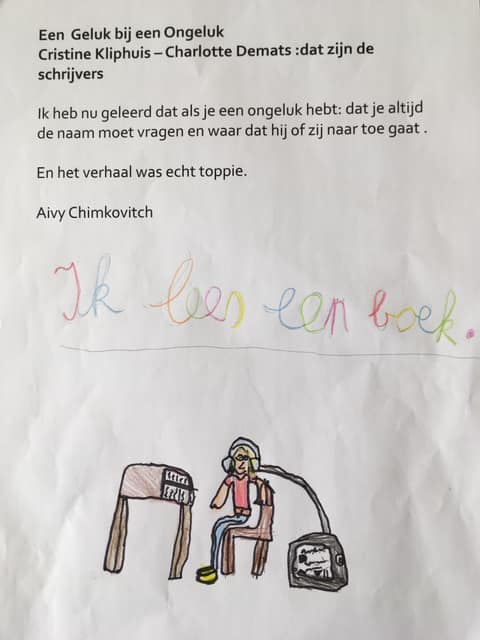 Een Geluk bij een Ongeluk
Cristine Kliphuis – Charlotte Demats :dat zijn de
schrijvers
Ik heb nu geleerd dat als je een ongeluk hebt: dat je altijd
de naam moet vragen en waar dat hij of zij naar toe gaat .
En het verhaal was echt toppie.
Aivy Chimkovitch
Ik lees een boek.